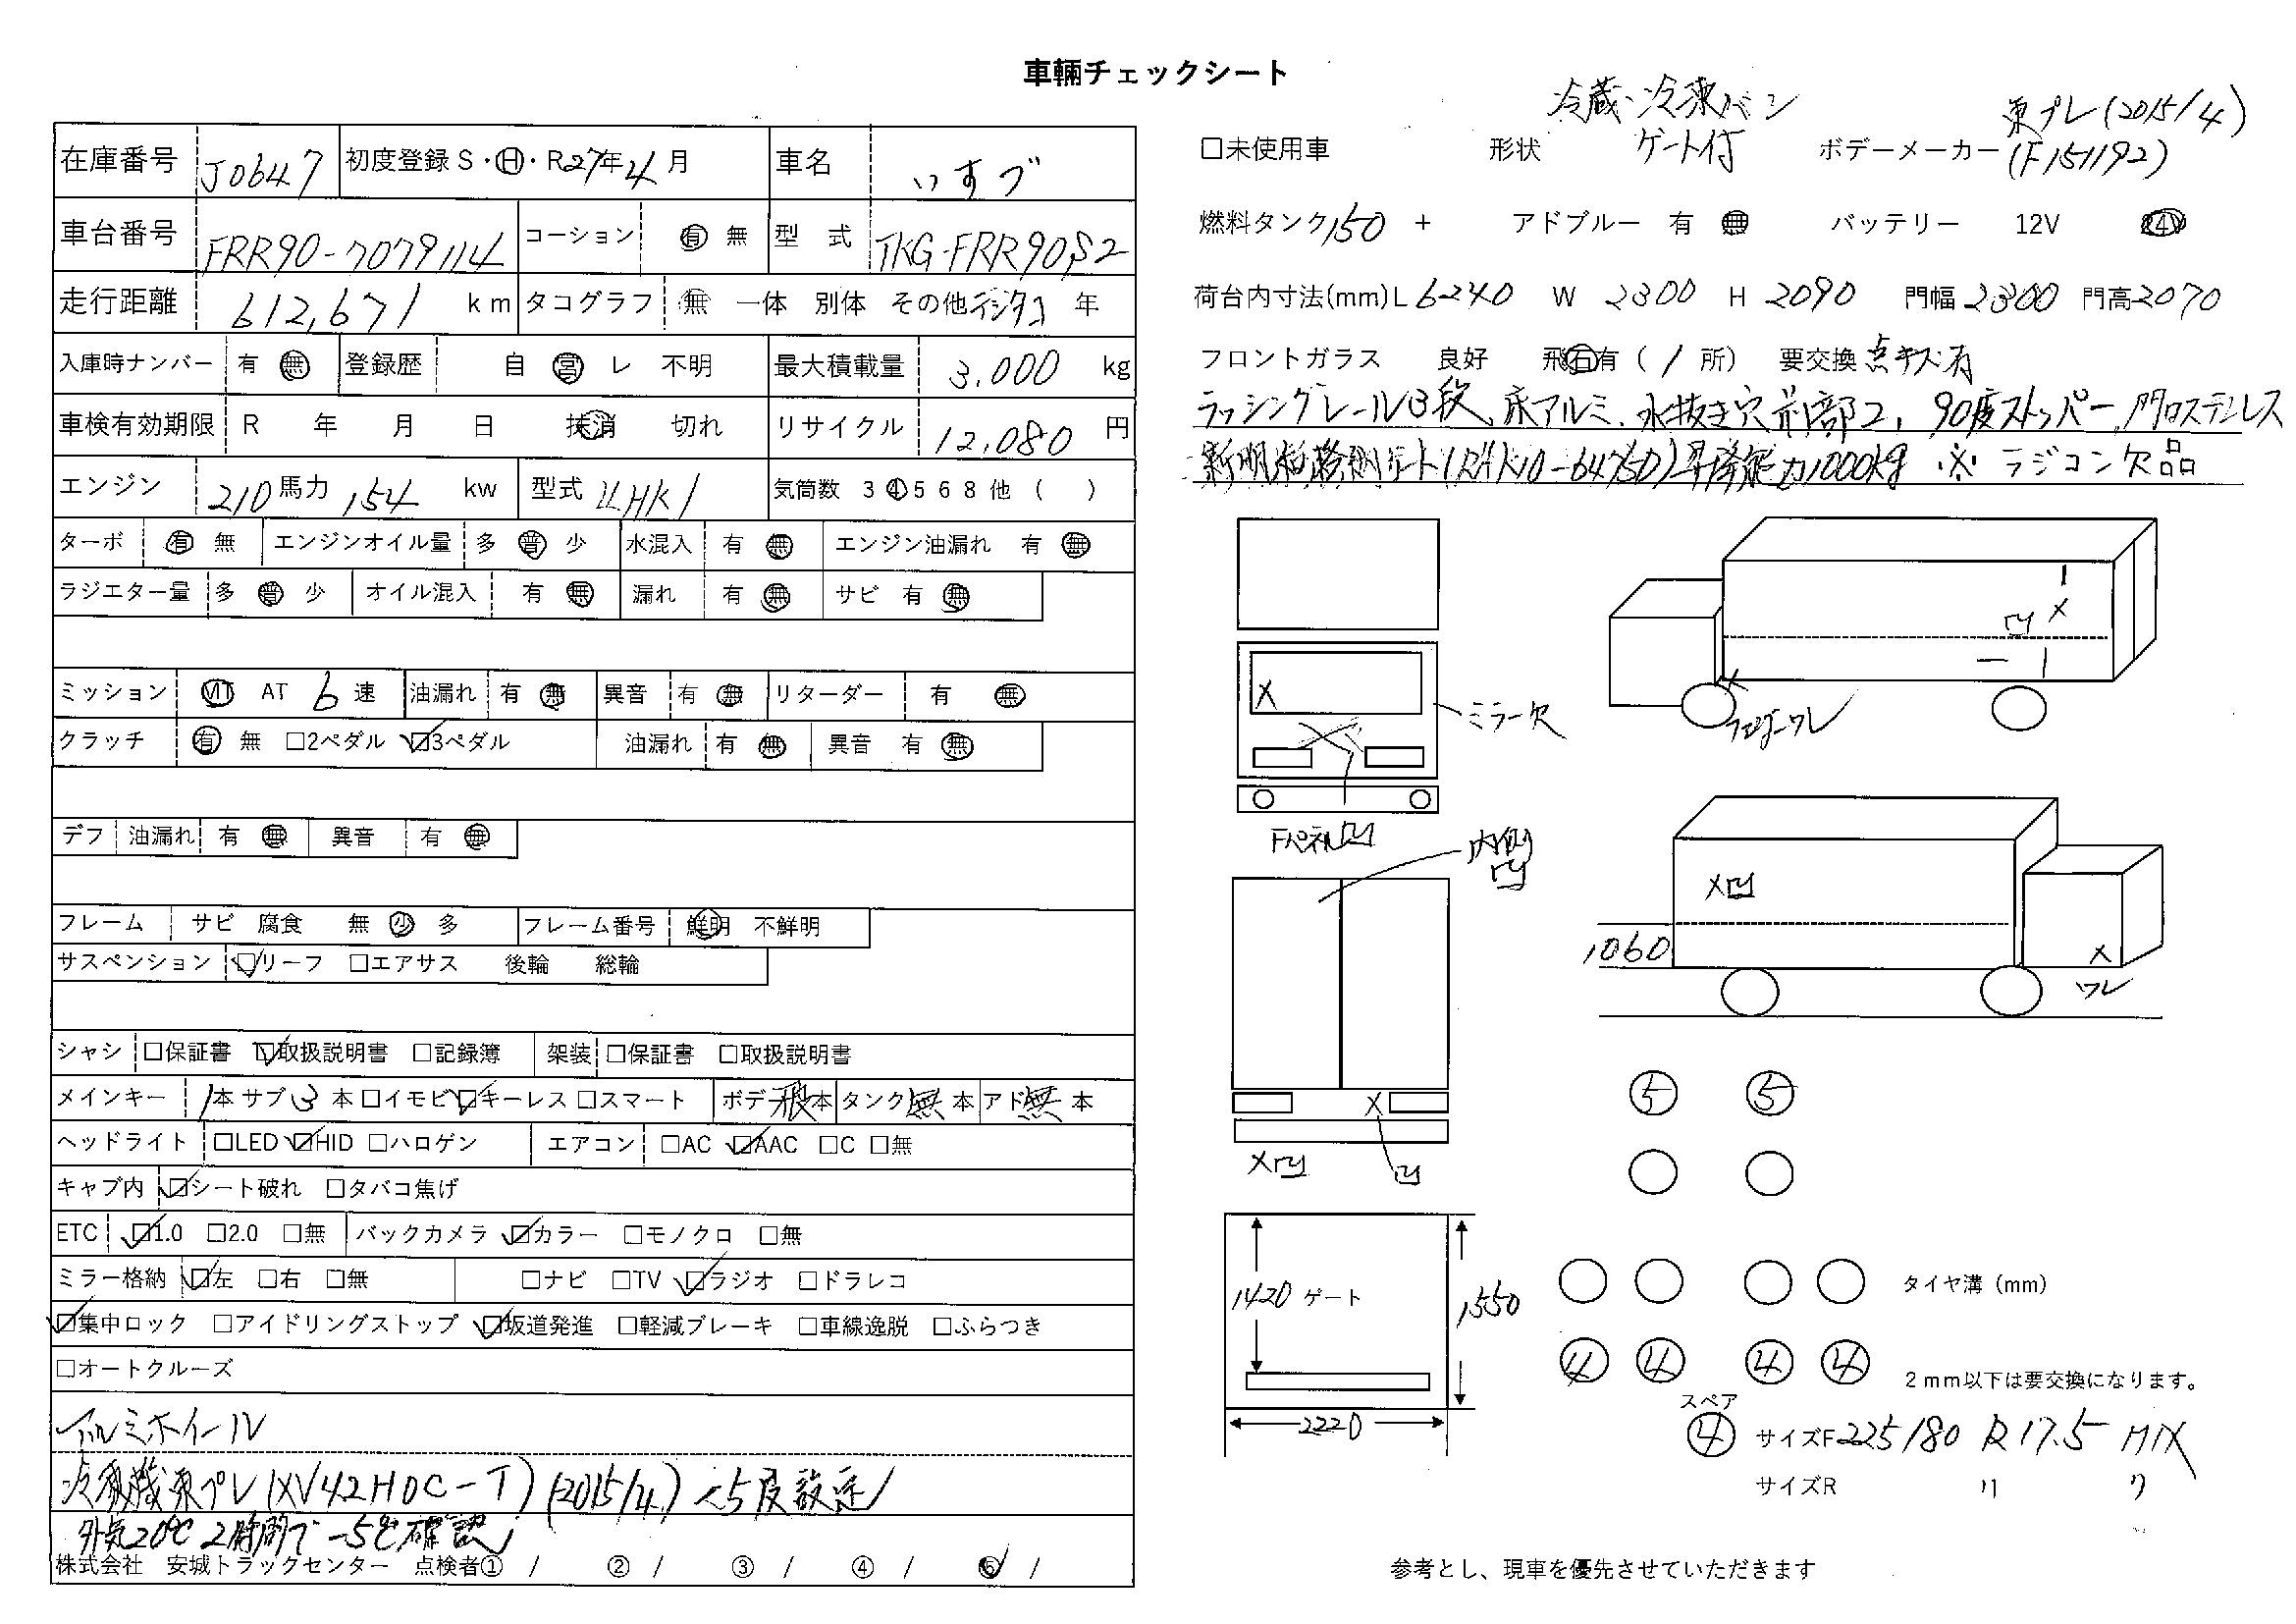 車輛チェックシート
在庫番号 J0647 初度登録 S・H・R 27年 4月 車名 いすゞ
車台番号 FRR90-7079114 コーション 有 無 型 式 TKG-FRR90S2
走行距離 612,671 km タコグラフ 無 一体 別体 その他 デジタコ 年
入庫時ナンバー 有 無 登録歴 自 営 レ 不明 最大積載量 3,000 kg
車検有効期限 R 年 月 日 抹消 切れ リサイクル 12,080 円
エンジン 210 馬力 154 kw 型式 4HK1 気筒数 3 4 5 6 8 他 ( )
ターボ 有 無 エンジンオイル量 多 普 少 水混入 有 無 エンジン油漏れ 有 無
ラジエター量 多 普 少 オイル混入 有 無 漏れ 有 無 サビ 有 無
ミッション MT AT 6 速 油漏れ 有 無 異音 有 無 リターダー 有 無
クラッチ 有 無 □2ペダル ☑3ペダル 油漏れ 有 無 異音 有 無
デフ 油漏れ 有 無 異音 有 無
フレーム サビ 腐食 無 少 多 フレーム番号 鮮明 不鮮明
サスペンション ☑リーフ □エアサス 後輪 総輪
シャシ □保証書 ☑取扱説明書 □記録簿 架装 □保証書 □取扱説明書
メインキー 1本 サブ 3 本 □イモビ ☑キーレス □スマート ボデー 本 タンク 無 本 アド 無 本
ヘッドライト □LED ☑HID □ハロゲン エアコン □AC ☑AAC □C □無
キャブ内 ☑シート破れ □タバコ焦げ
ETC ☑1.0 □2.0 □無 バックカメラ ☑カラー □モノクロ □無
ミラー格納 ☑左 □右 □無 □ナビ □TV ☑ラジオ □ドラレコ
☑集中ロック □アイドリングストップ ☑坂道発進 □軽減ブレーキ □車線逸脱 □ふらつき
□オートクルーズ
アルミホイール
冷凍蔵東プレ(XV42HDC-T)(2015/4) -5度設定
外気20℃ 2時間で -5℃確認
株式会社 安城トラックセンター 点検者① / ② / ③ / ④ / ⑤ /
冷蔵・冷凍バン 東プレ(2015/4)
□未使用車 形状 ゲート付 ボデーメーカー (F151192)
燃料タンク 150 + アドブルー 有 無 バッテリー 12V 24V
荷台内寸法(mm) L 6240 W 2300 H 2090 門幅 2300 門高 2070
フロントガラス 良好 飛石有 ( 1 所) 要交換 点キズ有
ラッシングレール3段、床アルミ、水抜き穴前部2、90度ストッパー、門口ステンレス
新明和格納ゲート(RAK10-6475D)昇降能力1000kg ※ ラジコン欠品
X
ミラー欠
Fパネル凹
フェンダーワレ
内側
凹
X凹
1060
X
ワレ
X
X凹 凹
5 5
1420 ゲート 1550
2220
タイヤ溝(mm)
4 4 4 4
2mm以下は要交換になります。
スペア
4 サイズF 225/80 R17.5 MIX
サイズR 〃 〃
参考とし、現車を優先させていただきます